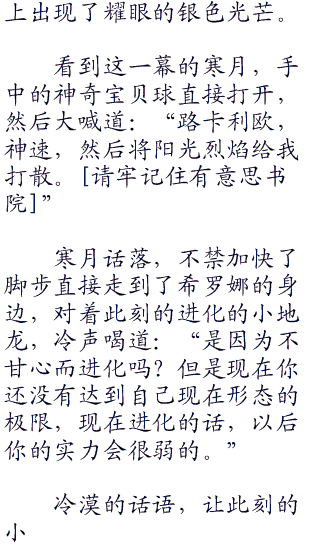 上出现了耀眼的银色光芒。
看到这一幕的寒月，手
中的神奇宝贝球直接打开，
然后大喊道：“路卡利欧，
神速，然后将阳光烈焰给我
打散。[请牢记住有意思书
院]”
寒月话落，不禁加快了
脚步直接走到了希罗娜的身
边，对着此刻的进化的小地
龙，冷声喝道：“是因为不
甘心而进化吗？但是现在你
还没有达到自己现在形态的
极限，现在进化的话，以后
你的实力会很弱的。”
冷漠的话语，让此刻的
小